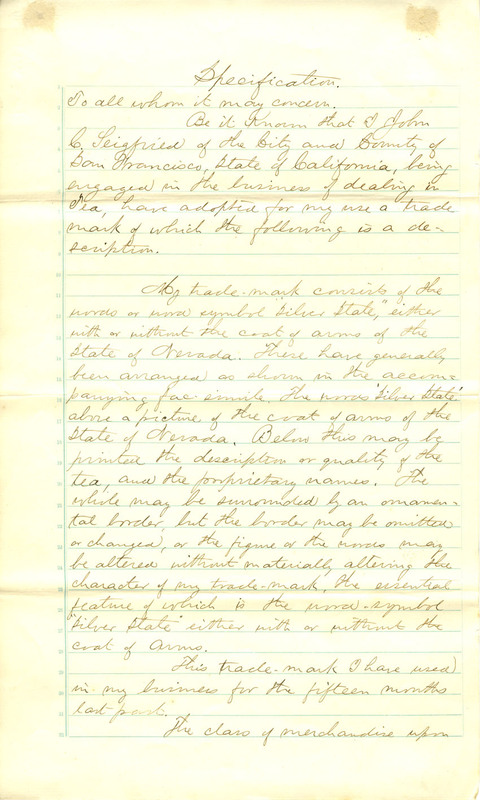 Specification.
To all whom it may concern.
Be it Known that I John
C. Seigfried of the City and County of
San Francisco, State of California, being
engaged in the business of dealing in
Tea, have adopted for my use a trade
mark of which the following is a de-
scription.
My trade-mark consists of the
words or word symbol "Silver State," either
with or without the coat of arms of the
State of Nevada. These have generally
been arranged as shown in the accom-
panying fac-simile. The words "Silver State"
above a picture of the coat of arms of the
State of Nevada. Below this may be
printed the description or quality of the
tea, and the proprietary names. The
whole may be surrounded by an ornamen-
tal border, but the border may be omitted
or changed, or the figure or the words may
be altered without materially altering the
character of my trade-mark, the essential
feature of which is the word-symbol
"Silver State" either with or without the
coat of arms.
This trade-mark I have used
in my business for the fifteen months
last past.
The class of merchandise upon